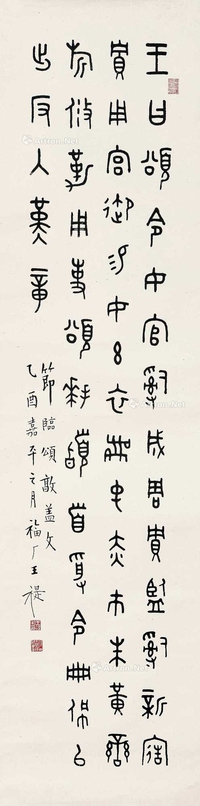 王曰頌令女官𤔲成周貯監𤔲新造
貯用宮御易女玄衣黹屯赤巿朱黃䜌
旂攸勒用事頌拜𩒨首受令冊佩以
出反入堇章
節臨頌敦蓋文
乙酉嘉平之月福厂王禔